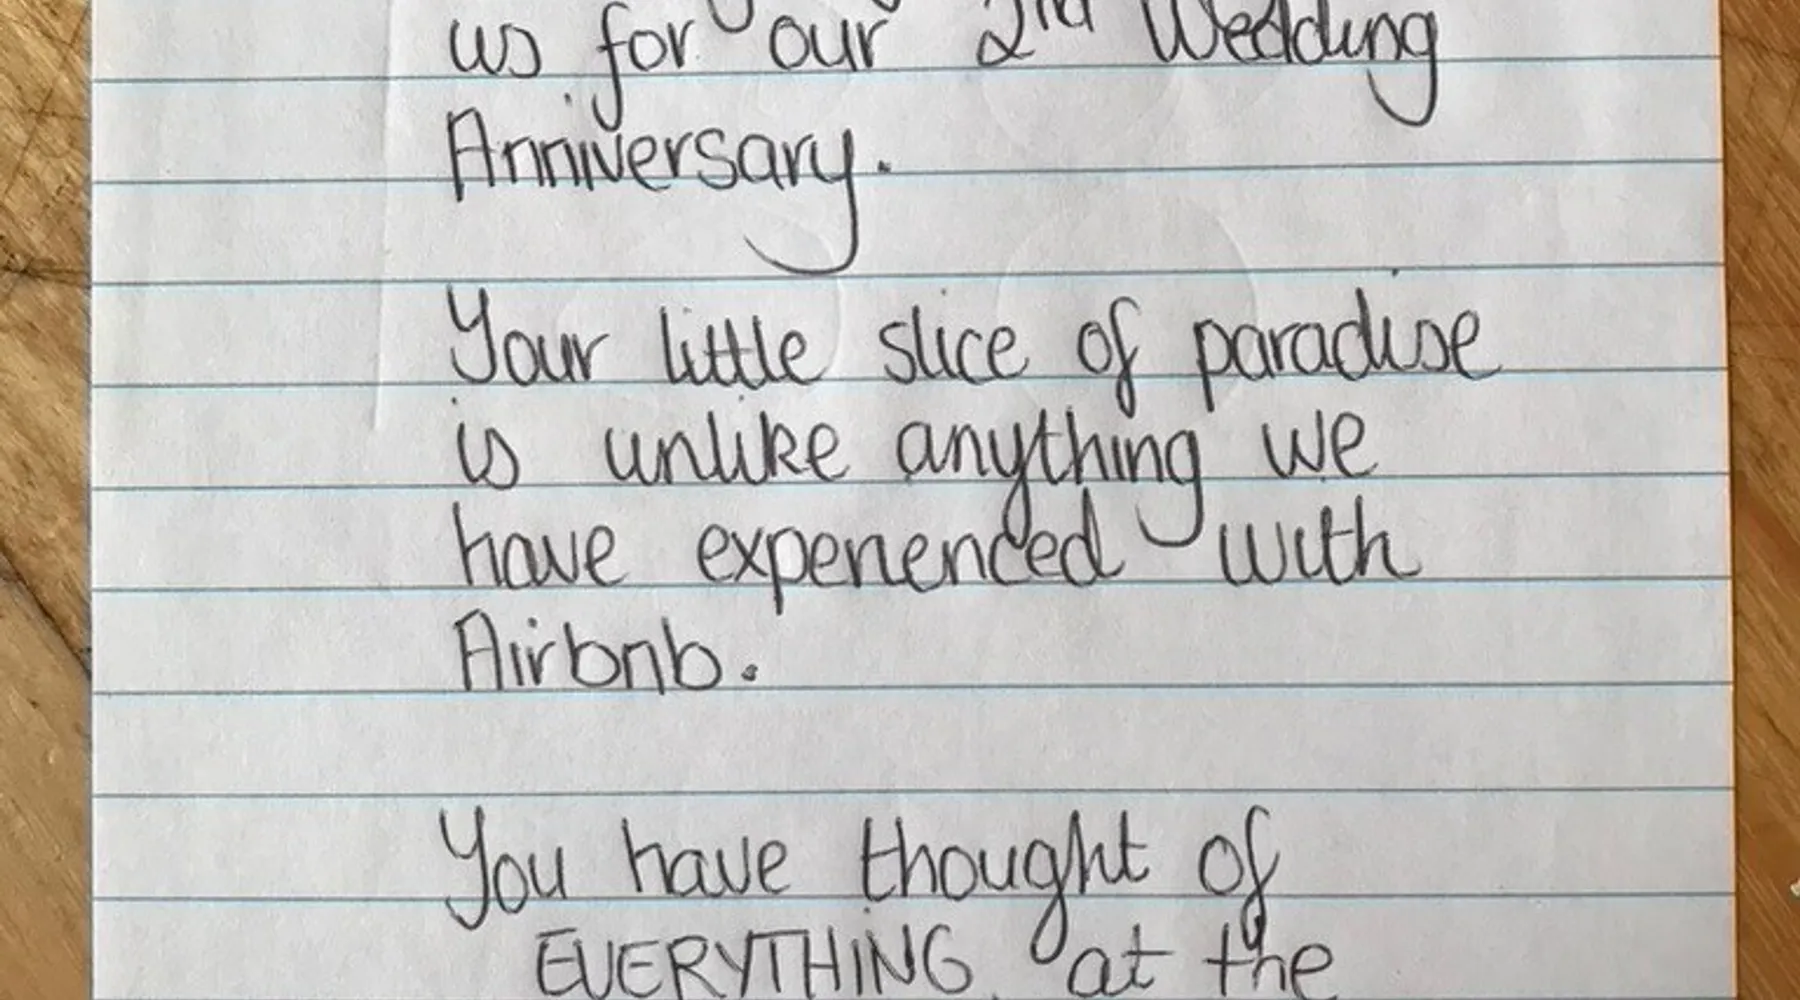 us for our 2nd Wedding
Anniversary.
Your little slice of paradise
is unlike anything we
have experienced with
Airbnb.
You have thought of
EVERYTHING at the